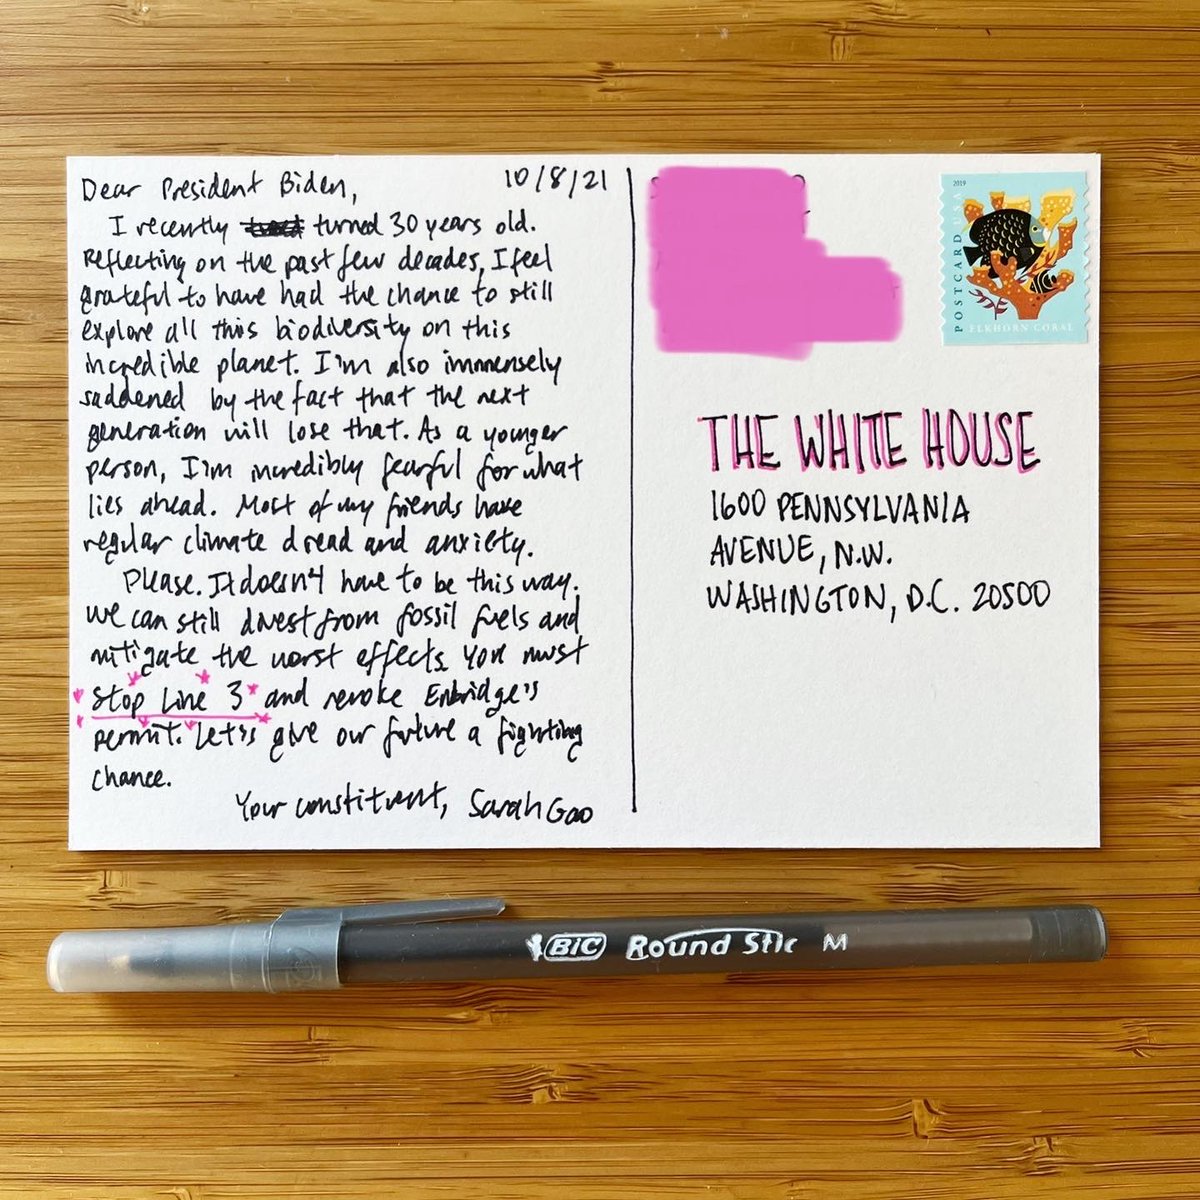 Dear President Biden,
10/8/21
I recently turned 30 years old.
Reflecting on the past few decades, I feel
grateful to have had the chance to still
explore all this biodiversity on this
incredible planet. I'm also immensely
saddened by the fact that the next
generation will lose that. As a younger
person, I'm incredibly fearful for what
lies ahead. Most of my friends have
regular climate dread and anxiety.
Please. It doesn't have to be this way.
We can still divest from fossil fuels and
mitigate the worst effects. You must
Stop Line 3 and revoke Enbridge's
permit. Let's give our future a fighting
chance.
Your constituent, Sarah Gao
2019
POSTCARD
ELKHORN CORAL
THE WHITE HOUSE
1600 PENNSYLVANIA
AVENUE, N.W.
WASHINGTON, D.C. 20500
BIC Round Stic M